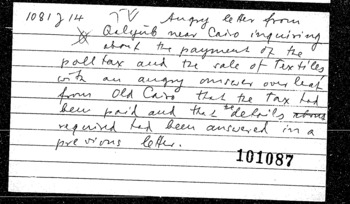 1081 J 14 TV Angry letter from
Qalyub near Cairo inquiring
about the payment of the
poll tax and the sale of textiles
with an angry answer over leaf
from Old Cairo that the tax had
been paid and that the details
required had been answered in a
previous letter.
101087